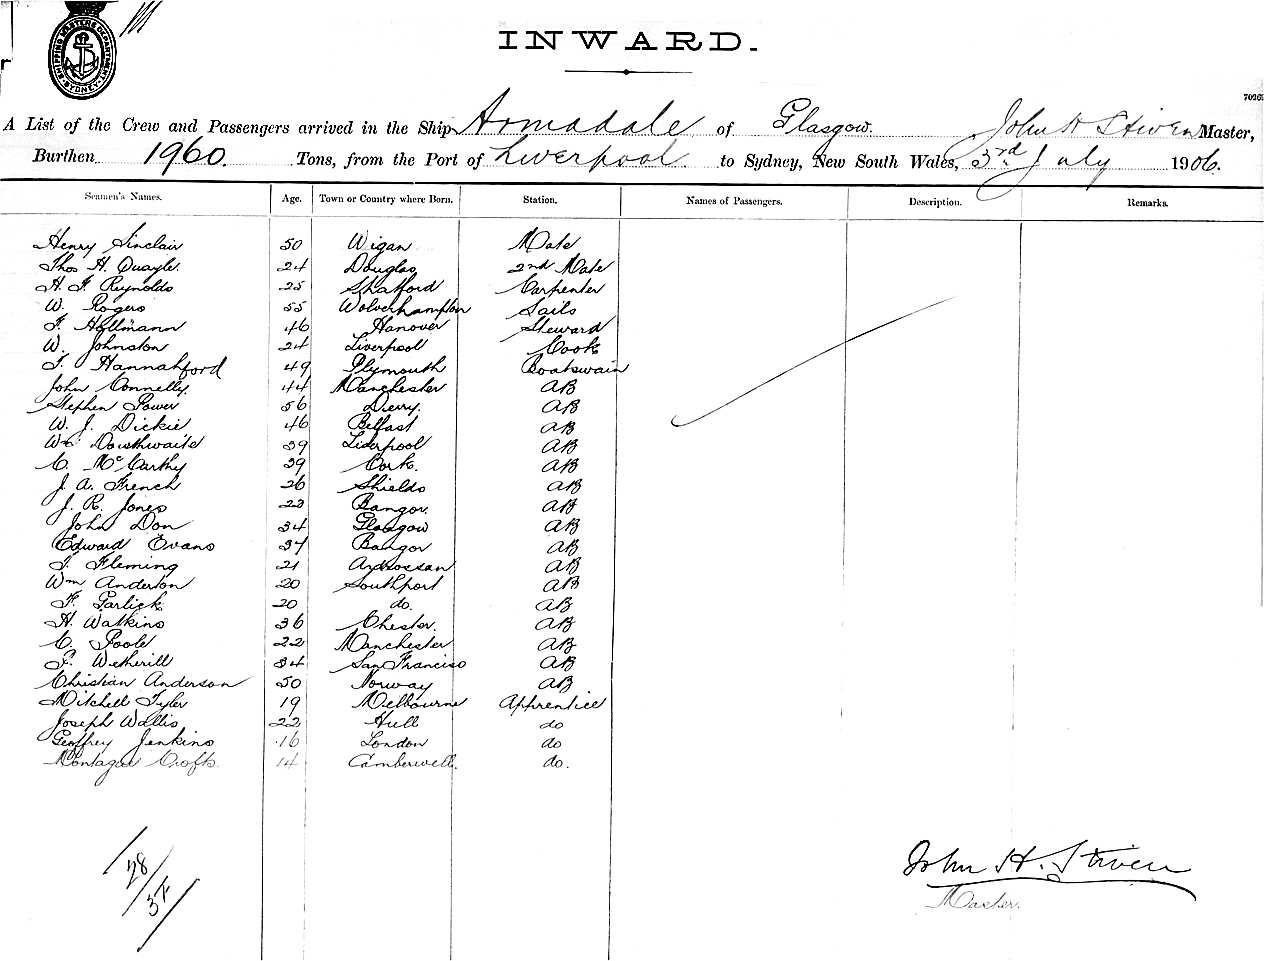 SHIPPING MASTER'S DEPARTMENT SYDNEY
INWARD.
A List of the Crew and Passengers arrived in the Ship Armadale of Glasgow. John H Stiven Master,
Burthen 1960. Tons, from the Port of Liverpool to Sydney, New South Wales, 3rd July 1906.
Seamen's Names. Age. Town or Country where Born. Station. Names of Passengers. Description. Remarks.
Henry Sinclair 50 Wigan Mate
Thos H. Quayle. 24 Douglas 2nd Mate
H. F Reynolds 25 Carpenter
W. Rogers 55 Wolverhampton Sails
F. Hollmann 46 Hanover Steward
W. Johnston 24 Liverpool Cook
T. Hannahford 49 Plymouth Boatswain
John Connelly. 44 Manchester AB
Stephen Power 56 Derry. AB
W. J. Dickie 46 Belfast AB
Wm Douthwaite 39 Liverpool AB
C. McCarthy 39 Cork. AB
J. A. French 26 Shields AB
J. R. Jones 23 Bangor. AB
John Don 34 Glasgow AB
Edward Evans 37 Bangor AB
T. Fleming 21 Ardrossan AB
Wm Anderson 20 Southport AB
F. Garlick 20 do. AB
H. Watkins 36 Chester. AB
C. Poole 22 Manchester AB
F. Wetherill 34 San Francisco AB
Christian Anderson 50 Norway AB
Mitchell Tyler 19 Melbourne Apprentice
Joseph Wallis 22 Hull do
Geoffrey Jenkins 16 London do
Montague Crofts 14 Camberwell. do.
28
John H. Stiven
Master.